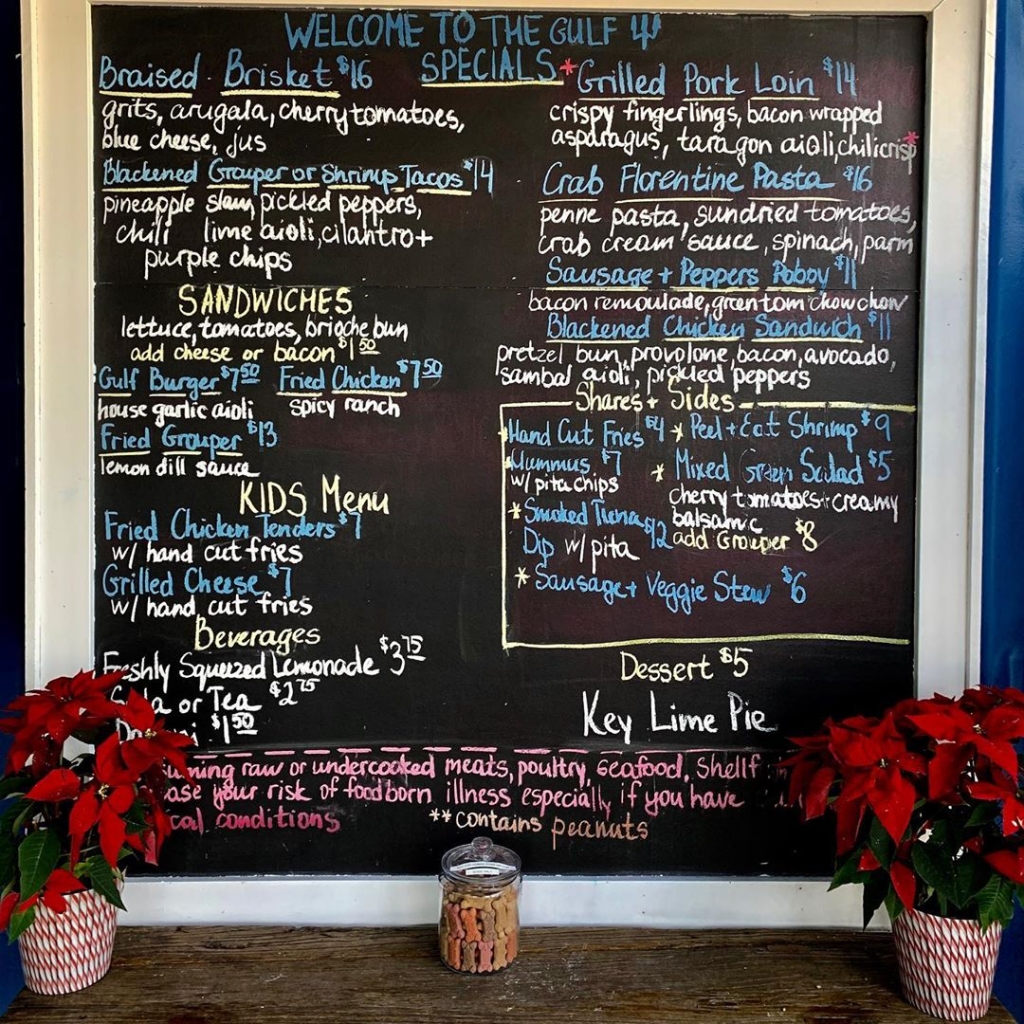 WELCOME TO THE GULF
SPECIALS
Braised Brisket $16
grits, arugala, cherry tomatoes,
blue cheese, jus
Blackened Grouper or Shrimp Tacos $14
pineapple slaw, pickled peppers,
chili lime aioli, cilantro +
purple chips
SANDWICHES
lettuce, tomatoes, brioche bun
add cheese or bacon $1.50
Gulf Burger $7.50 Fried Chicken $7.50
house garlic aioli spicy ranch
Fried Grouper $13
lemon dill sauce
KIDS Menu
Fried Chicken Tenders $7
w/ hand cut fries
Grilled Cheese $7
w/ hand cut fries
Beverages
Freshly Squeezed Lemonade $3.75
or Tea $2.75
$1.50
*Grilled Pork Loin $14
crispy fingerlings, bacon wrapped
asparagus, taragon aioli, chili crisp*
Crab Florentine Pasta $16
penne pasta, sundried tomatoes,
crab cream sauce, spinach, parm
Sausage + Peppers Poboy $11
bacon remoulade, green tom chow chow
Blackened Chicken Sandwich $11
pretzel bun, provolone, bacon, avocado,
sambal aioli, pickled peppers
Shares + Sides
*Hand Cut Fries $4
*Hummus $7
w/ pita chips
*Smoked Tuna $12
Dip w/ pita
*Peel + Eat Shrimp $9
*Mixed Green Salad $5
cherry tomatoes + creamy
balsamic
add Grouper $8
*Sausage + Veggie Stew $6
Dessert $5
Key Lime Pie
raw or undercooked meats, poultry, seafood,
your risk of foodborn illness especially if you have
conditions **contains peanuts